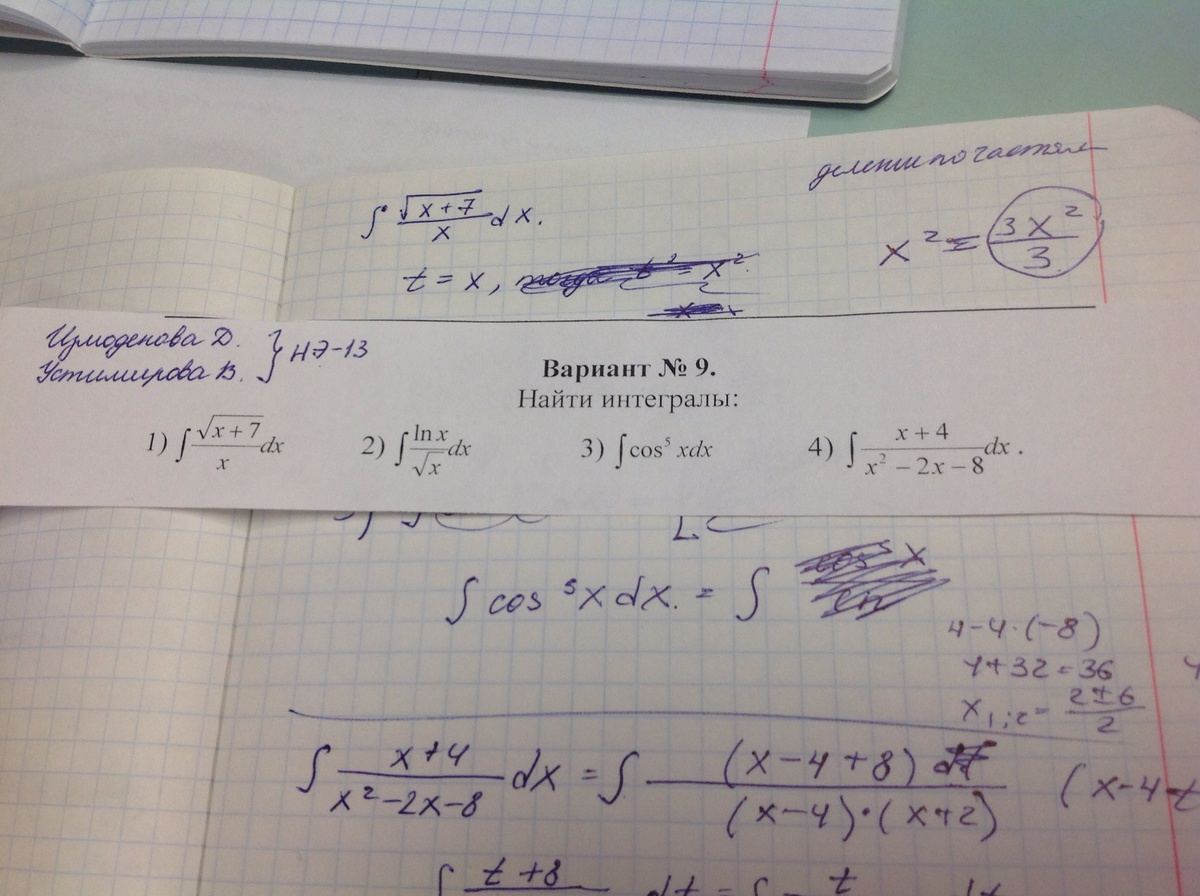 делении по частям
∫ √(x+7)/x dx.
x² = 3x²/3
t = x,
Измоденова Д.
Устимирова В. } НЭ-13
Вариант № 9.
Найти интегралы:
1) ∫ √(x+7)/x dx 2) ∫ ln x/√x dx 3) ∫ cos⁵ xdx 4) ∫ (x+4)/(x² − 2x − 8) dx .
∫ cos⁵x dx. = ∫
4−4·(−8)
4+32=36
x₁;₂ = (2±6)/2
∫ (x+4)/(x²−2x−8) dx = ∫ (x−4+8)/((x−4)·(x+2)) (x−4=t
∫ t+8 dt = ∫ t dt